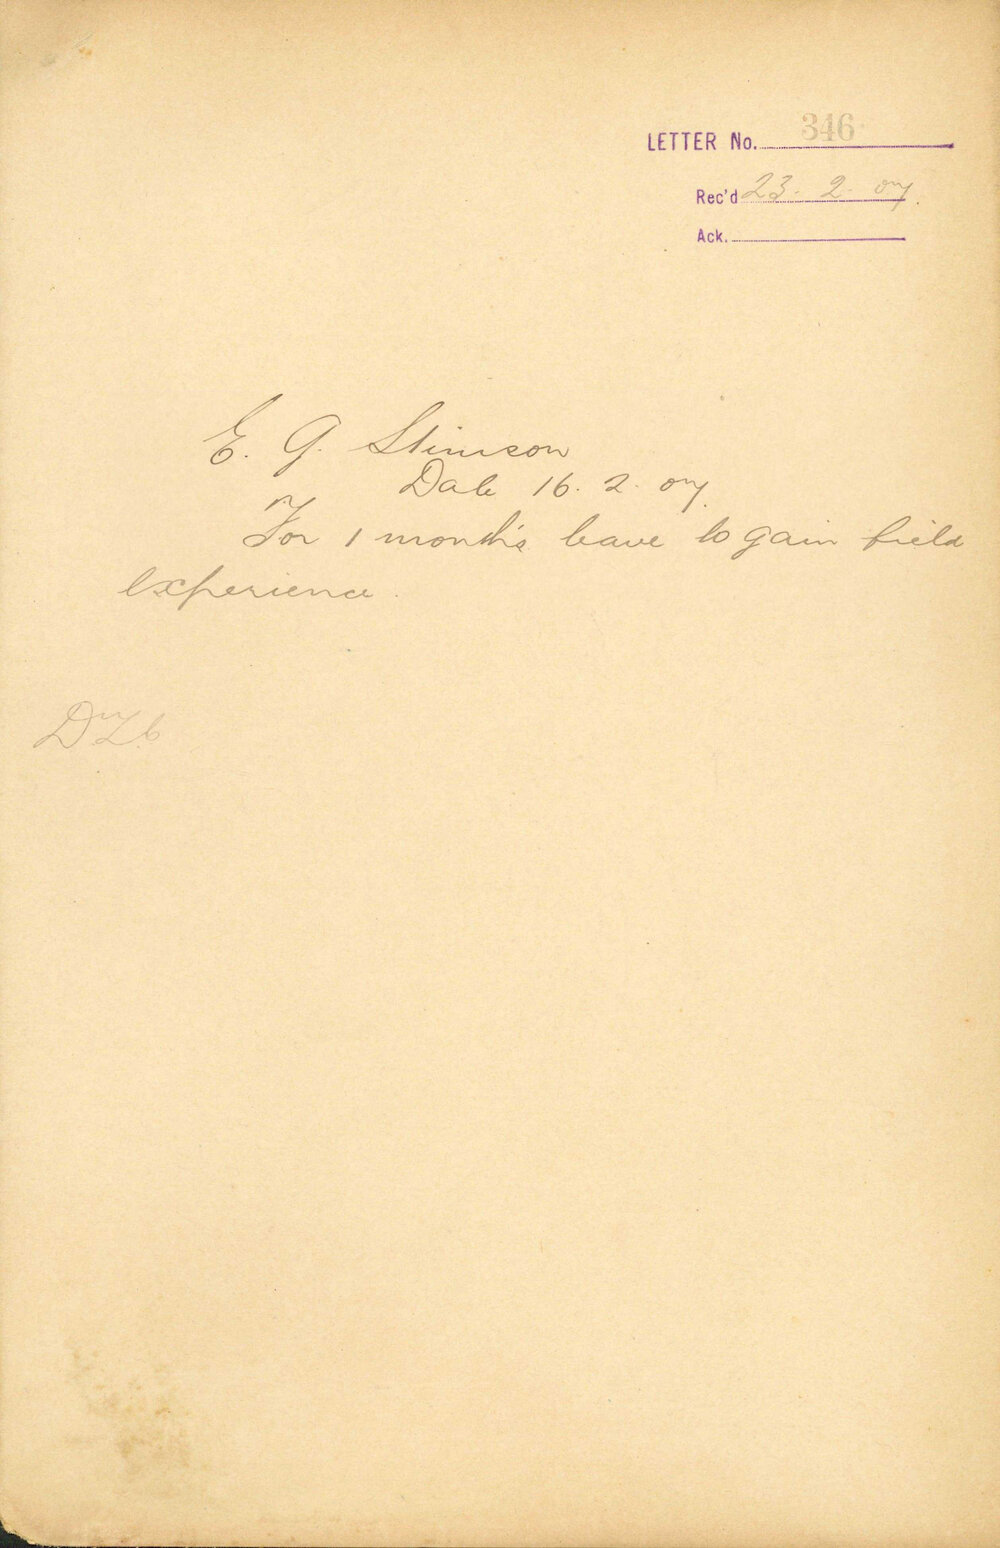 LETTER No. 346
Rec'd 23. 2. 07.
Ack.
E. G. Stimson
Date 16. 2. 07.
For 1 month's leave to gain field
experience.